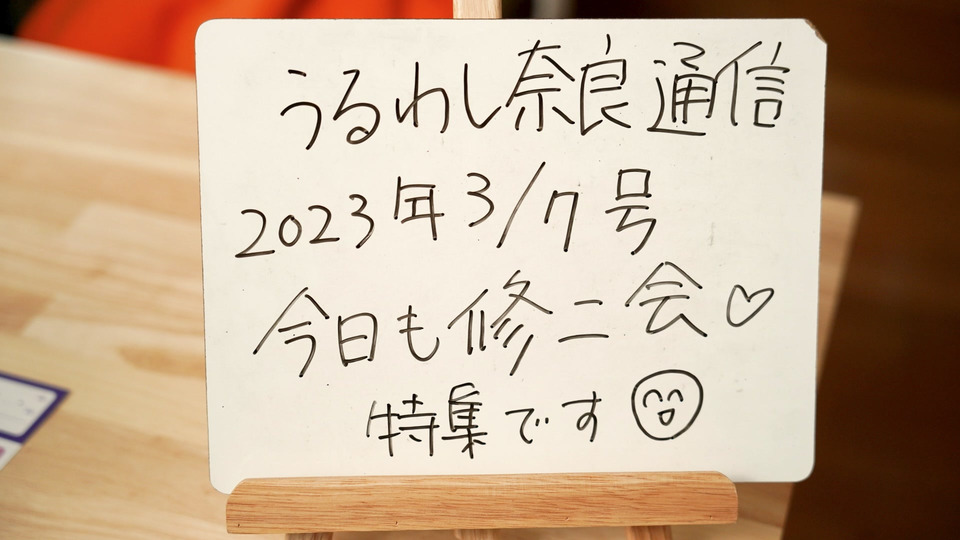 うるわし奈良通信
2023年3/7号
今日も修二会♡
特集です